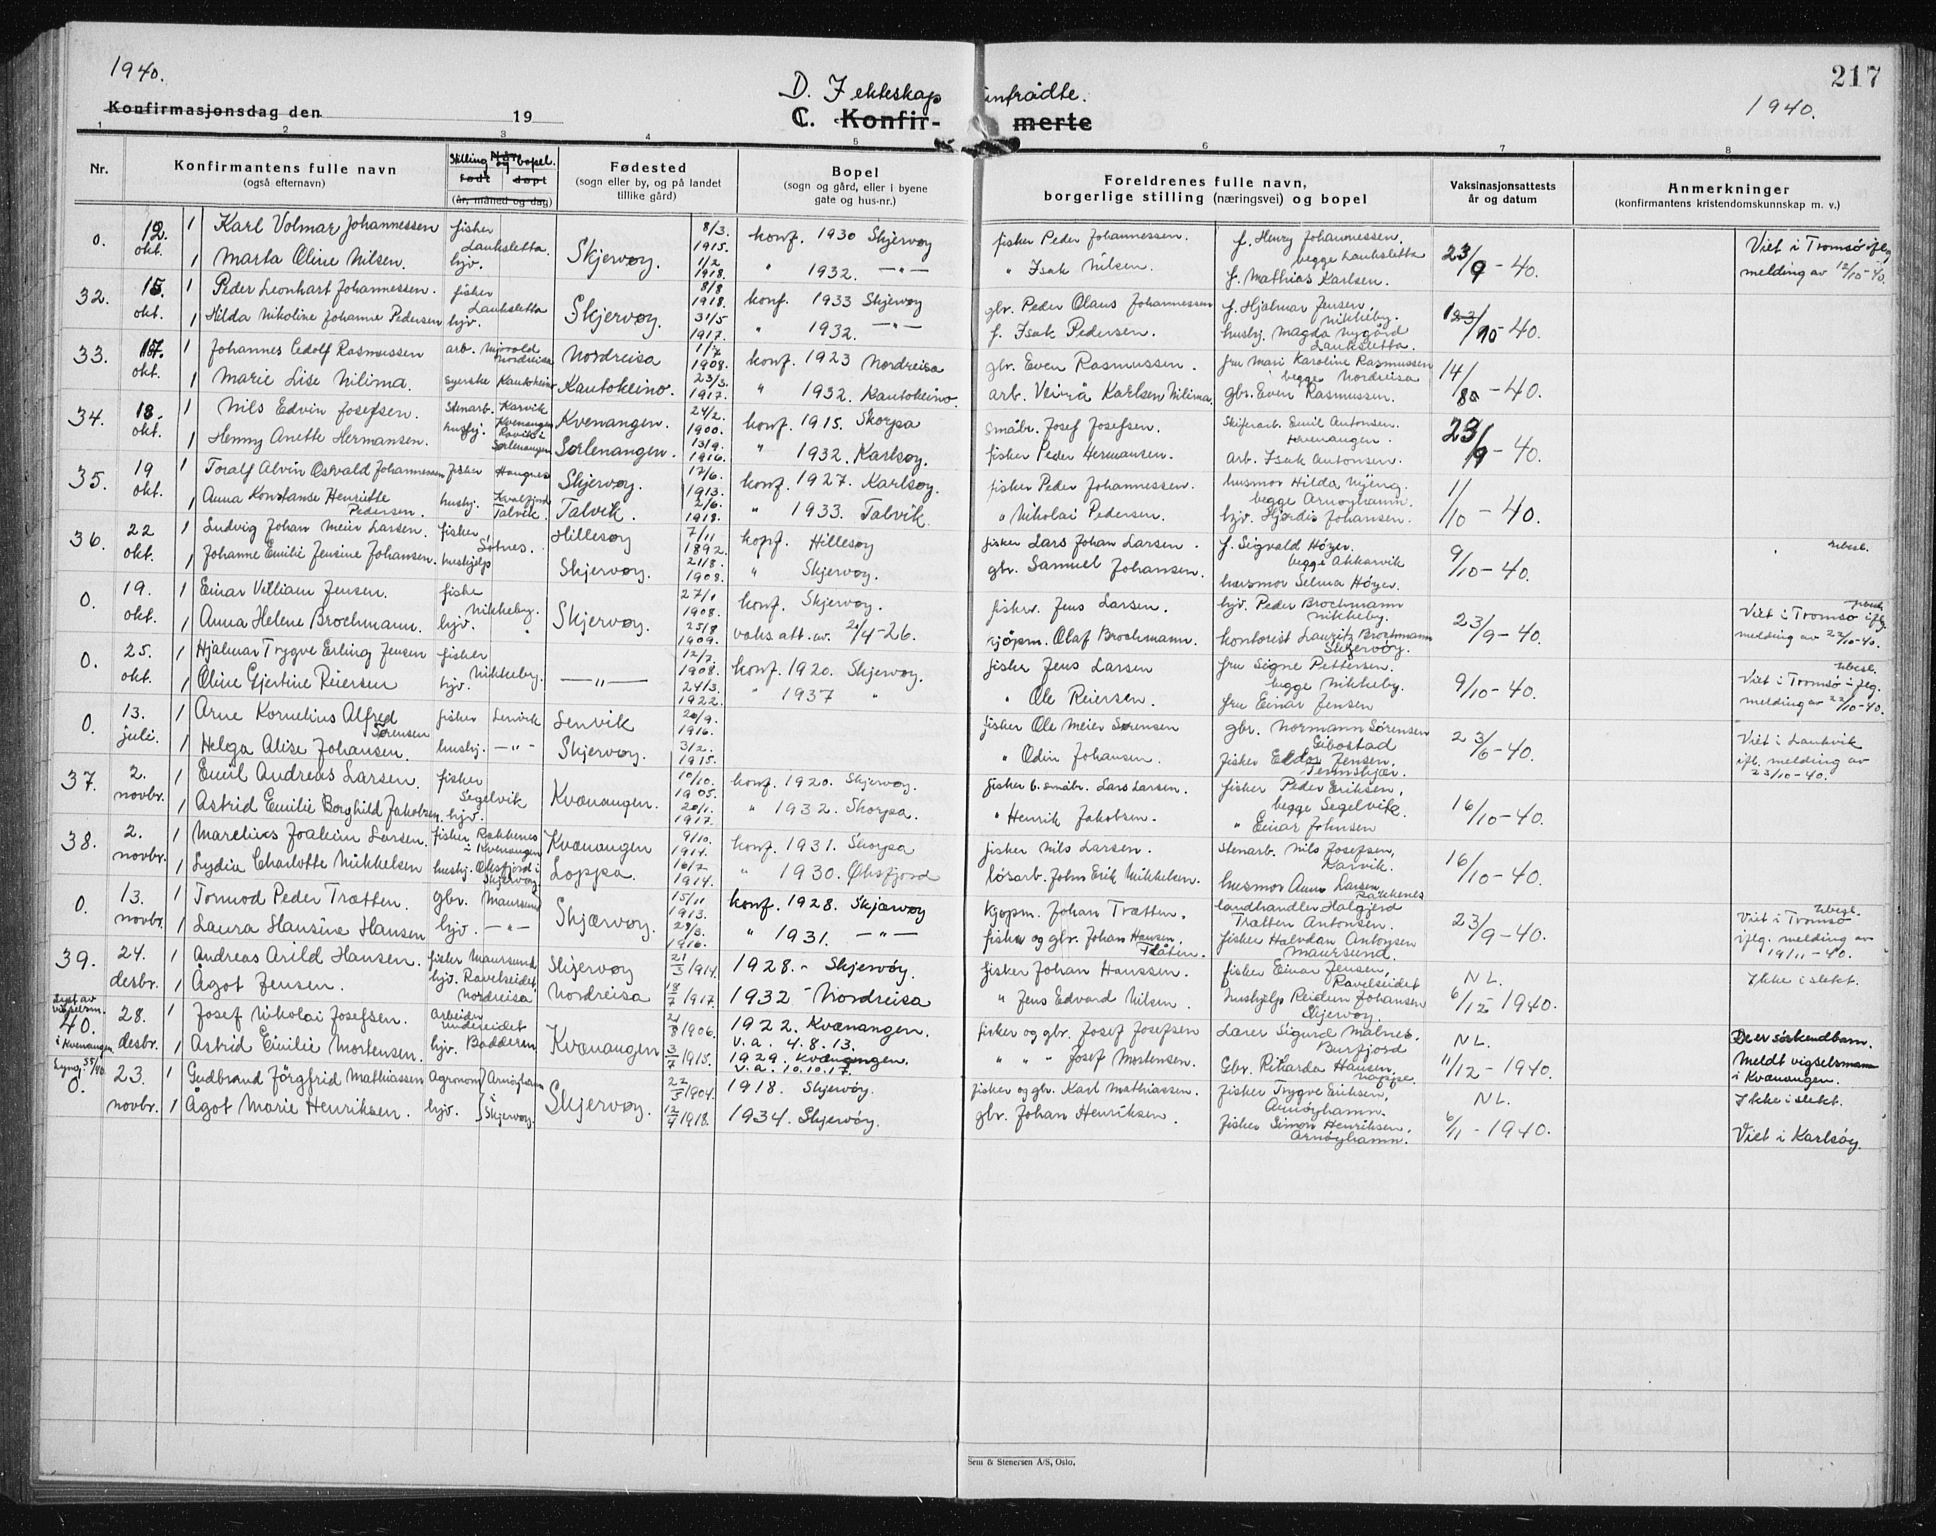 1940.
217
D. I ekteskap inntrådte.
1940.
Konfirmasjonsdag den 19
C. Konfir- merte
1 2 3 4 5 6 7 8
Nr.
Konfirmantens fulle navn
(også efternavn)
Stilling og bopel.
Når
født døpt
(år, måned og dag)
Fødested
(sogn eller by, og på landet
tillike gård)
Bopel
(sogn og gård, eller i byene
gate og hus-nr.)
Foreldrenes fulle navn,
borgerlige stilling (næringsvei) og bopel
Vaksinasjonsattests
år og datum
Anmerkninger
(konfirmantens kristendomskunnskap m. v.)
0. 12. okt. 1 Karl Volmar Johannessen fisher Lauksletta Skjervøy. 8/3. 1915. konf. 1930 Skjervøy fisker Peder Johannessen. f. Henry Johannessen, begge Lauksletta 23/9 - 40. Viet i Tromsø iflg
1 Marta Oline Nilsen. hjv. 1/2 1918. " 1932. —"— " Isak Nilsen. f. Mathias Karlsen. melding av 12/10-40.
32. 15. okt. 1 Peder Leonhart Johannessen. fisker Lauksletta Skjervøy. 8/8 1918. konf. 1933 Skjervøy gbr. Peder Olaus Johannessen f. Hjalmar Jensen, Nikkeby. /10 - 40.
1 Hilda Nikoline Johanne Pedersen hjv. 31/5 1917. " 1932. —"— f. Isak Pedersen. hushj. Magda Nygård Lauksletta.
33. 17. okt. 1 Johannes Edolf Rasmussen arb. Nordreisa Nordreisa 1/7 1908. konf. 1923 Nordreisa gbr. Even Rasmussen. fru Mari Karoline Rasmussen begge Nordreisa 14/ - 40.
1 Marie Lise Nilima. syerske Kautokeino Kautokeino. 23/3. 1917. " 1932. Kautokeino. arb. Karlsen Nilima. gbr. Even Rasmussen.
34. 18. okt. 1 Nils Edvin Josefsen. Stenarb. Karvik Kvenangen Kvenangen. 24/2. 1900. konf. 1915. Skorpa småbr. Josef Josefsen. Skiferarb. Emil Antonsen. Kvenangen. 23/9 - 40.
1 Henny Anette Hermansen. hushj. Sørlenangen Sørlenangen. 13/9. 1916. " 1932. Karlsøy. fisker Peder Hermansen. arb. Isak Antonsen.
35. 19 okt. 1 Toralf Alvin Osvald Johannessen fisker Haugnes Skjervøy. 17/6. 1913. konf. 1927. Karlsøy. fisker Peder Johannessen. husmor Hilda Nyeng. begge Arnøyhamn. 1/10 - 40.
1 Anna Konstanse Henriette Pedersen. hushj. Kvalfjord Talvik. Talvik. 2/6. 1918. " 1933. Talvik. " Nikolai Pedersen. hjv. Hjørdis Johansen.
36. 22 okt. 1 Ludvig Johan Meier Larsen. fisker, Hillesøy 7/11 1892. konf. Hillesøy fisker Lars Johan Larsen. f. Sigvald Høyer. begge Akkarvik 9/10 - 40. ubesl.
1 Johanne Emilie Jensine Johansen. hushjelp Skjervøy. 21/8. 1908. " Skjervøy. gbr. Samuel Johansen. husmor Selma Høyer.
0. 19. okt. 1 Einar Villiam Jensen. fisker Nikkeby. Skjervøy. 27/1 1908. konf. Skjervøy. fisker. Jens Larsen. hjv. Peder Brochmann Nikkeby. 23/9 - 40. ubesl. Viet i Tromsø iflg.
1 Anna Helene Brochmann. hjv. 25/8 1909. vaks. att. av. 21/4-26. kjøpm. Olaf Brochmann. kontorist Lauritz Brochmann Skjervøy. melding av 22/10-40.
0. 25. okt. 1 Hjalmar Trygve Erling Jensen fisker Nikkeby. —"— 12/7. 1908. konf. 1920. Skjervøy. fisker Jens Larsen fru Signe Pettersen. begge Nikkeby. 9/10 - 40. ubesl. Viet i Tromsø iflg.
1 Oline Gjertine Reiersen hjv. 24/3. 1922. " 1937 " " Ole Reiersen. fru Einar Jensen melding av 22/10-40.
0. 13. juli. 1 Arne Kornelius Alfred Sørensen fisker Lenvik Lenvik 20/9. 1916. fisker Ole Meier Sørensen gbr. Normann Sørensen Gibostad 23/6 - 40. Viet i Lenvik
1 Helga Alise Johansen. hushj. —"— Skjervøy. 3/2. 1915. " Odin Johansen. fisker Eldor Jensen, Tennskjær. ifl. melding av 23/10-40.
37. 2. novbr. 1 Emil Andreas Larsen. fisker Segelvik Kvænangen. 10/10. 1905. konf. 1920. Skjervøy. fisker b. småbr. Lars Larsen. fisker Peder Eriksen, begge Segelvik. 16/10 - 40.
1 Astrid Emilie Borghild Jakobsen. hjv. 20/1. 1917. " 1932. Skorpa. " Henrik Jakobsen. " Einar Johnsen
38. 2. novbr. 1 Marelius Joakim Larsen. fisker Rakkenes i Kvenangen Kvænangen 9/10. 1914. konf. 1931. Skorpa fisker Nils Larsen. Stenarb. Nils Josefsen, Karvik. 16/10 - 40.
1 Lydia Charlotte Mikkelsen hushj. Øksfjord i Skjervøy. Loppa. 16/7 1914. " 1930. Øksfjord løsarb. John Erik Mikkelsen. husmor Anna Larsen Rakkenes
0. 13. novbr. 1 Tormod Peder Trætten. gbr. Maursund Skjærvøy. 15/11 1913. konf. 1928. Skjærvøy Kjøpm. Johan Trætten. landhandler Halgjerd Trætten Antonsen. 23/9 - 40. ubesl. Viet i Tromsø
1 Laura Hansine Hansen hjv. —"— 29/3. 1916. " 1931. —"— fisker og gbr. Johan Hansen. Flåten. fisker Halvdan Antonsen Maursund. iflg. melding av 19/11-40.
39. 24. desbr. 1 Andreas Arild Hansen. fisker Maursund Skjervøy 21/3 1914. 1928. - Skjervøy. fisker Johan Hanssen. fisker Einar Jensen, Ravelseidet NL. Ikke i slekt.
1 Ågot Jensen. hjv. Ravelseidet Nordreisa Nordreisa 18/7 1917. 1932 - Nordreisa " Jens Edvard Nilsen. hushjelp Reidun Johansen Skjervøy. 6/12 - 1940.
Lyst av vigselsm. 40. i Kvenangen. 28. desbr. 1 Josef Nikolai Josefsen. Arbeider Undereidet Kvænangen 21/8 1906. 1922. Kvænangen. v.a. 4.8.13. fisker og gbr. Josef Josefsen Lærer Sigurd Malnes. Burfjord NL. De er søskendbarn.
1 Astrid Emilie Mortensen. hjv. Badderen 3/7 1915. 1929. Kvænangen. v.a. 10.10.17. " " " Josef Mortensen. Gbr. Rikarda Hansen, 11/12 - 1940. Meldt vigselsmann i Kvænangen.
Lyng. 55/40. 0. 23. novbr. 1 Gudbrand Jørgfrid Mathiassen Agronom Arnøyhamn i Skjervøy Skjervøy. 22/5 1904. 1918. Skjervøy. fisker og gbr. Karl Mathiassen. fisker Trygve Eriksen, Arnøyhamn. NL. Ikke i slekt.
1 Ågot Marie Henriksen. hjv. 12/9 1918. 1934. Skjervøy. gbr. Johan Henriksen. fisker Simon Henriksen, Arnøyhamn. 6/11 - 1940. Viet i Karlsøy.
Sem & Stenersen A/S, Oslo.